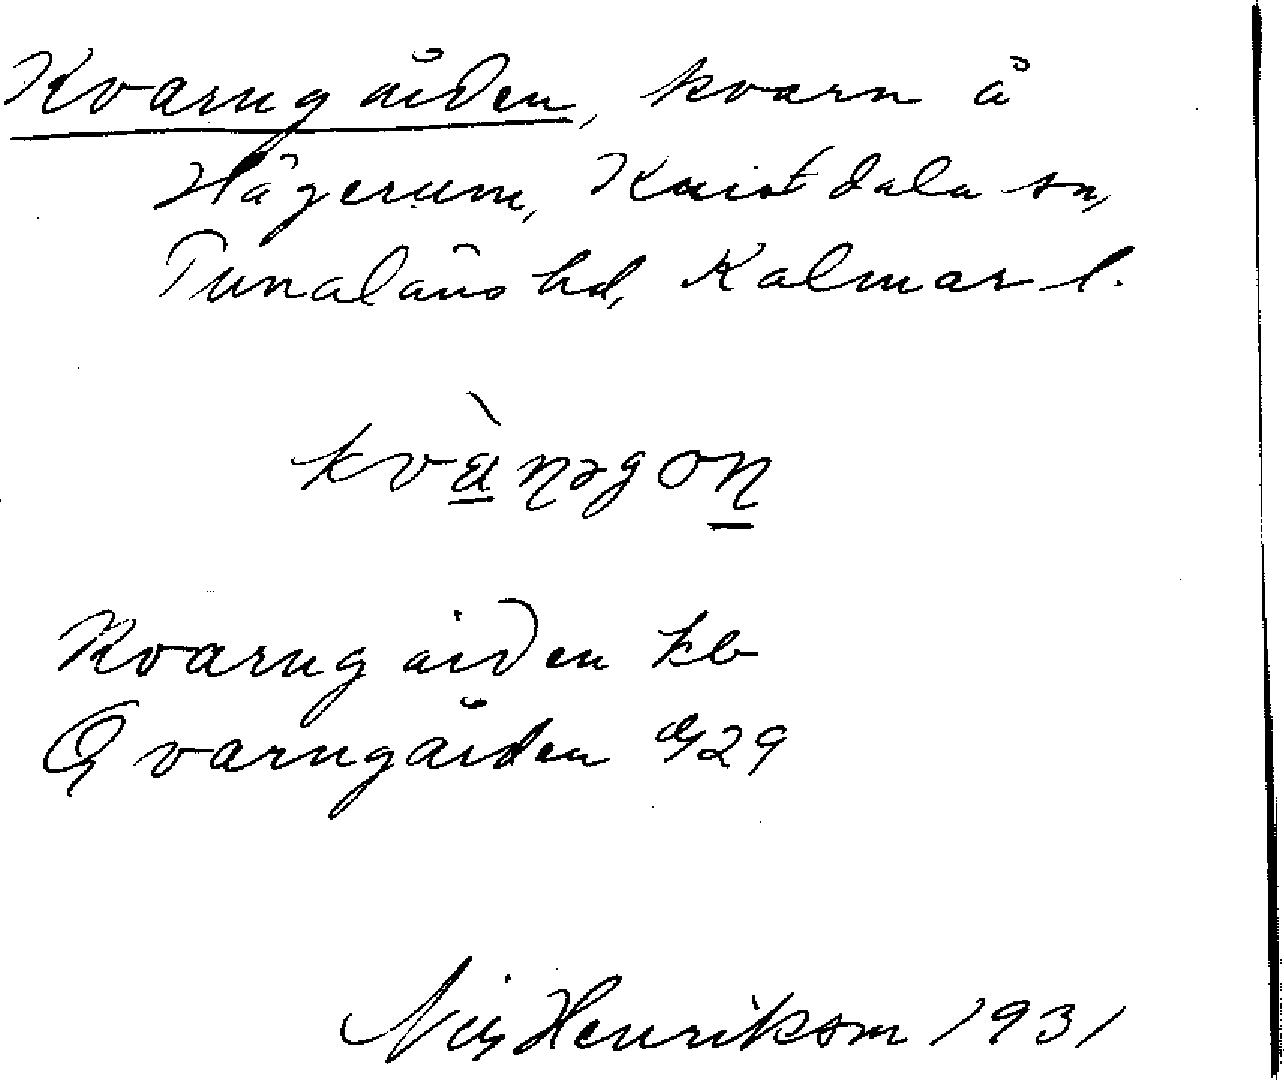 Kvarngården, kvarn å
Hägerum, Kristdala sn,
Tunaläns hd, Kalmar l.
kvànəgoṉ
Kvarngården kb
Qvarngården 29
Nils Henrikson 1931